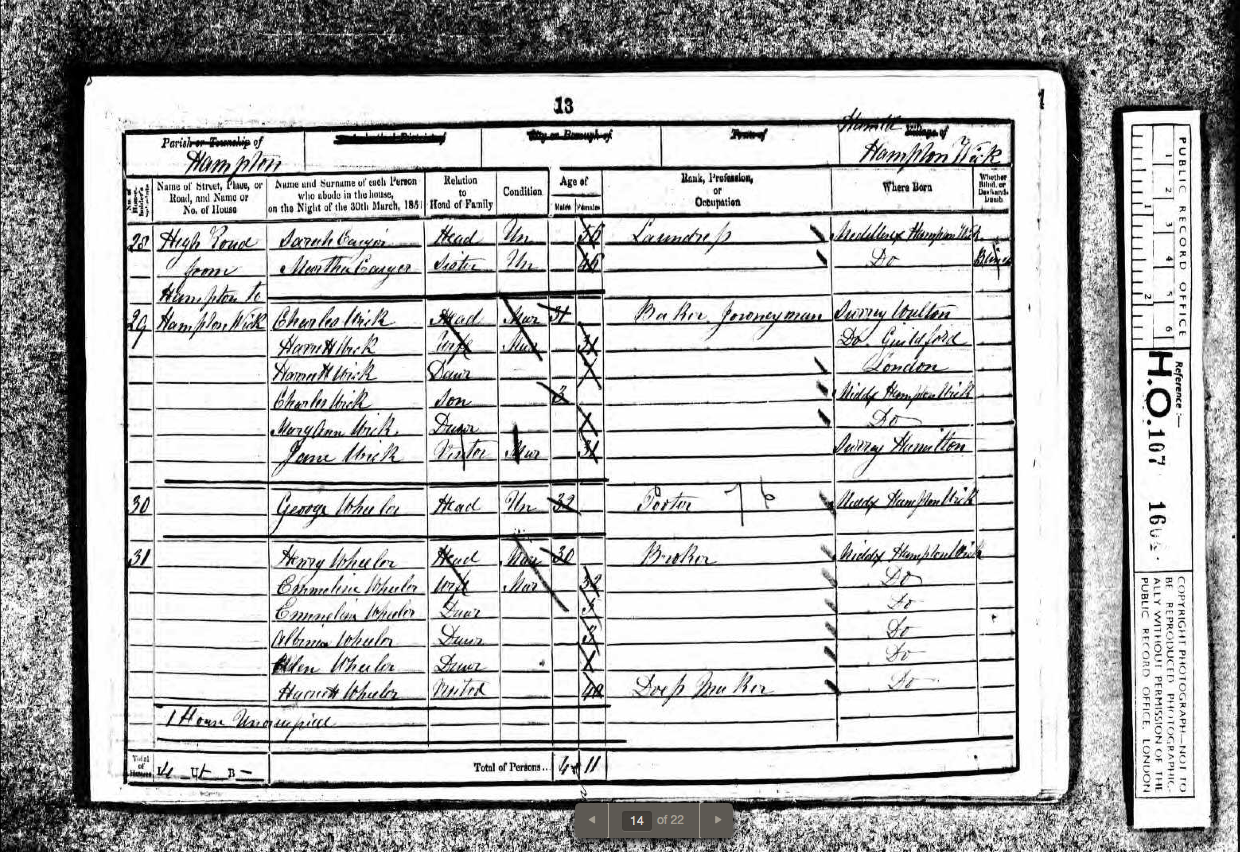 13
Parish or Township of
Hampton
Ecclesiastical District of
City or Borough of
Town of
Hamlet Village of
Hampton Wick
No. of House-holder's Schedule
Name of Street, Place, or Road, and Name or No. of House
Name and Surname of each Person who abode in the house, on the Night of the 30th March, 1851
Relation to Head of Family
Condition
Age of
Males Females
Rank, Profession, or Occupation
Where Born
Whether Blind, or Deaf-and-Dumb
28 High Road Sarah Head Un 56 Laundress Middlesex Hampton Wick
from Martha Sister Un 46 Do Blind
Hampton to
29 Hampton Wick Charles Wick Head Mar 31 Baker Journeyman Surrey
Harriett Wick Wife Mar 31 Do Guildford
Harriett Wick Daur London
Charles Wick Son 3 Middx Hampton Wick
Mary Ann Wick Daur Do
Jane Wick Visitor Mar 31 Surrey
30 George Wheeler Head Un 32 Porter 76 Middx Hampton Wick
31 Henry Wheeler Head Mar 30 Middx Hampton Wick
Emmeline Wheeler Wife Mar 32 Do
Emmeline Wheeler Daur Do
Wheeler Daur 3 Do
Ellen Wheeler Daur Do
Harriett Wheeler 40 Maker Do
1 House
Total of Houses 4 U 1 B —
Total of Persons... 4 11
14 of 22
PUBLIC RECORD OFFICE
1 2 3 4 5 6
Reference :—
H.O. 107
COPYRIGHT PHOTOGRAPH—NOT TO
BE REPRODUCED PHOTOGRAPHIC-
ALLY WITHOUT PERMISSION OF THE
PUBLIC RECORD OFFICE, LONDON